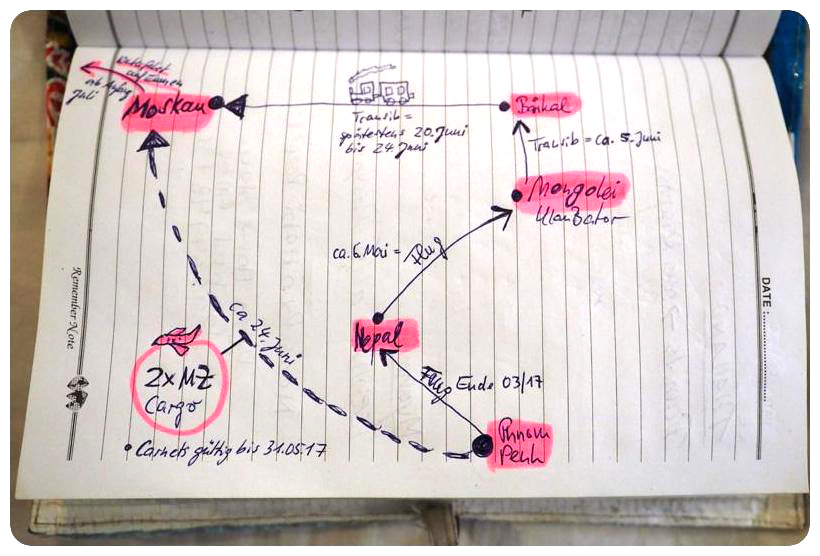 Rückfahrt
auf Eamen
ab Anfang
Juli
Moskau
Transib =
spätestens 20. Juni
bis 24 Juni
Baikal
Transib = ca. 5. Juni
Mongolei
Ulan Bator
ca. 6. Mai = Flug
Nepal
ca 24. Juni
Flug Ende 03/17
2x MZ
Cargo
Phnom
Penh
• Carnets gültig bis 31.05.17
Remember Note
DATE :